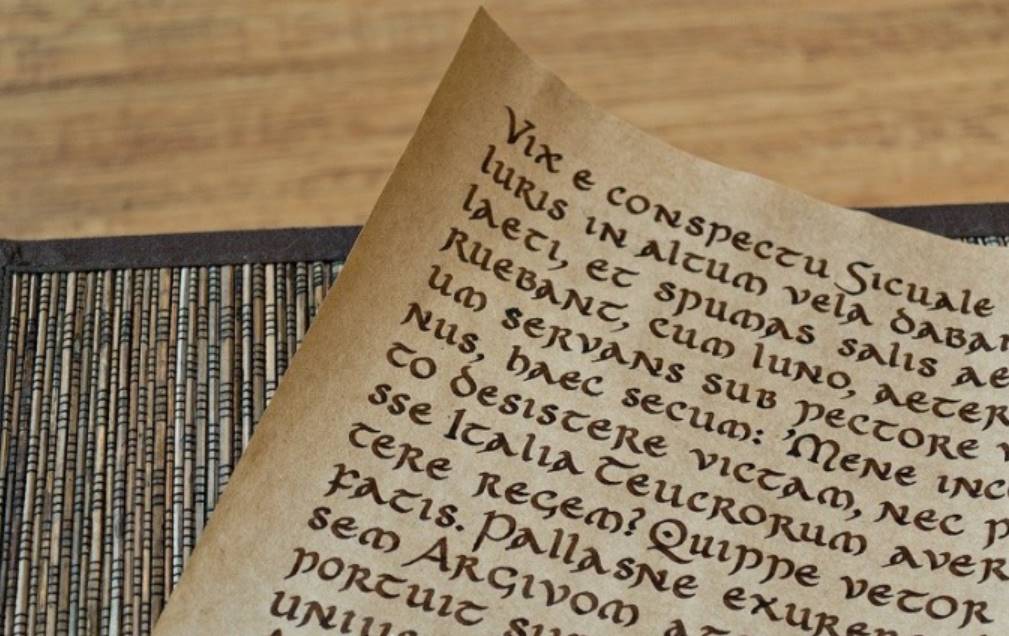 Vix e conspectu Sicuale
luris in altum vela daba
laeti, et spumas salis ae
ruebant, cum luno, aeter
um servans sub pectore v
nus, haec secum: 'Mene inc
to desistere victam, nec p
sse Italia Teucrorum aver
tere regem? Quippe vetor
fatis. Pallasne exure
sem Argivom at
portuit su